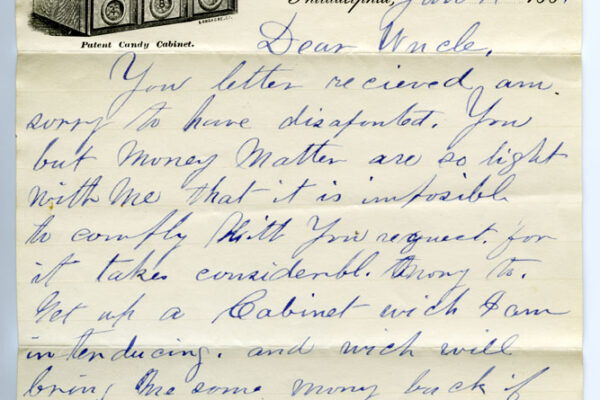 Patent Candy Cabinet.
Philadelphia,
Dear Uncle,
You letter recieved, am
sorry to have disaponted. You
but Money Matter are so tight
with Me that it is imposible
to comply With You request. for
it takes considerbl. Mony to.
Get up a Cabinet wich I am
intenducing. and wich will
bring Me some money back if